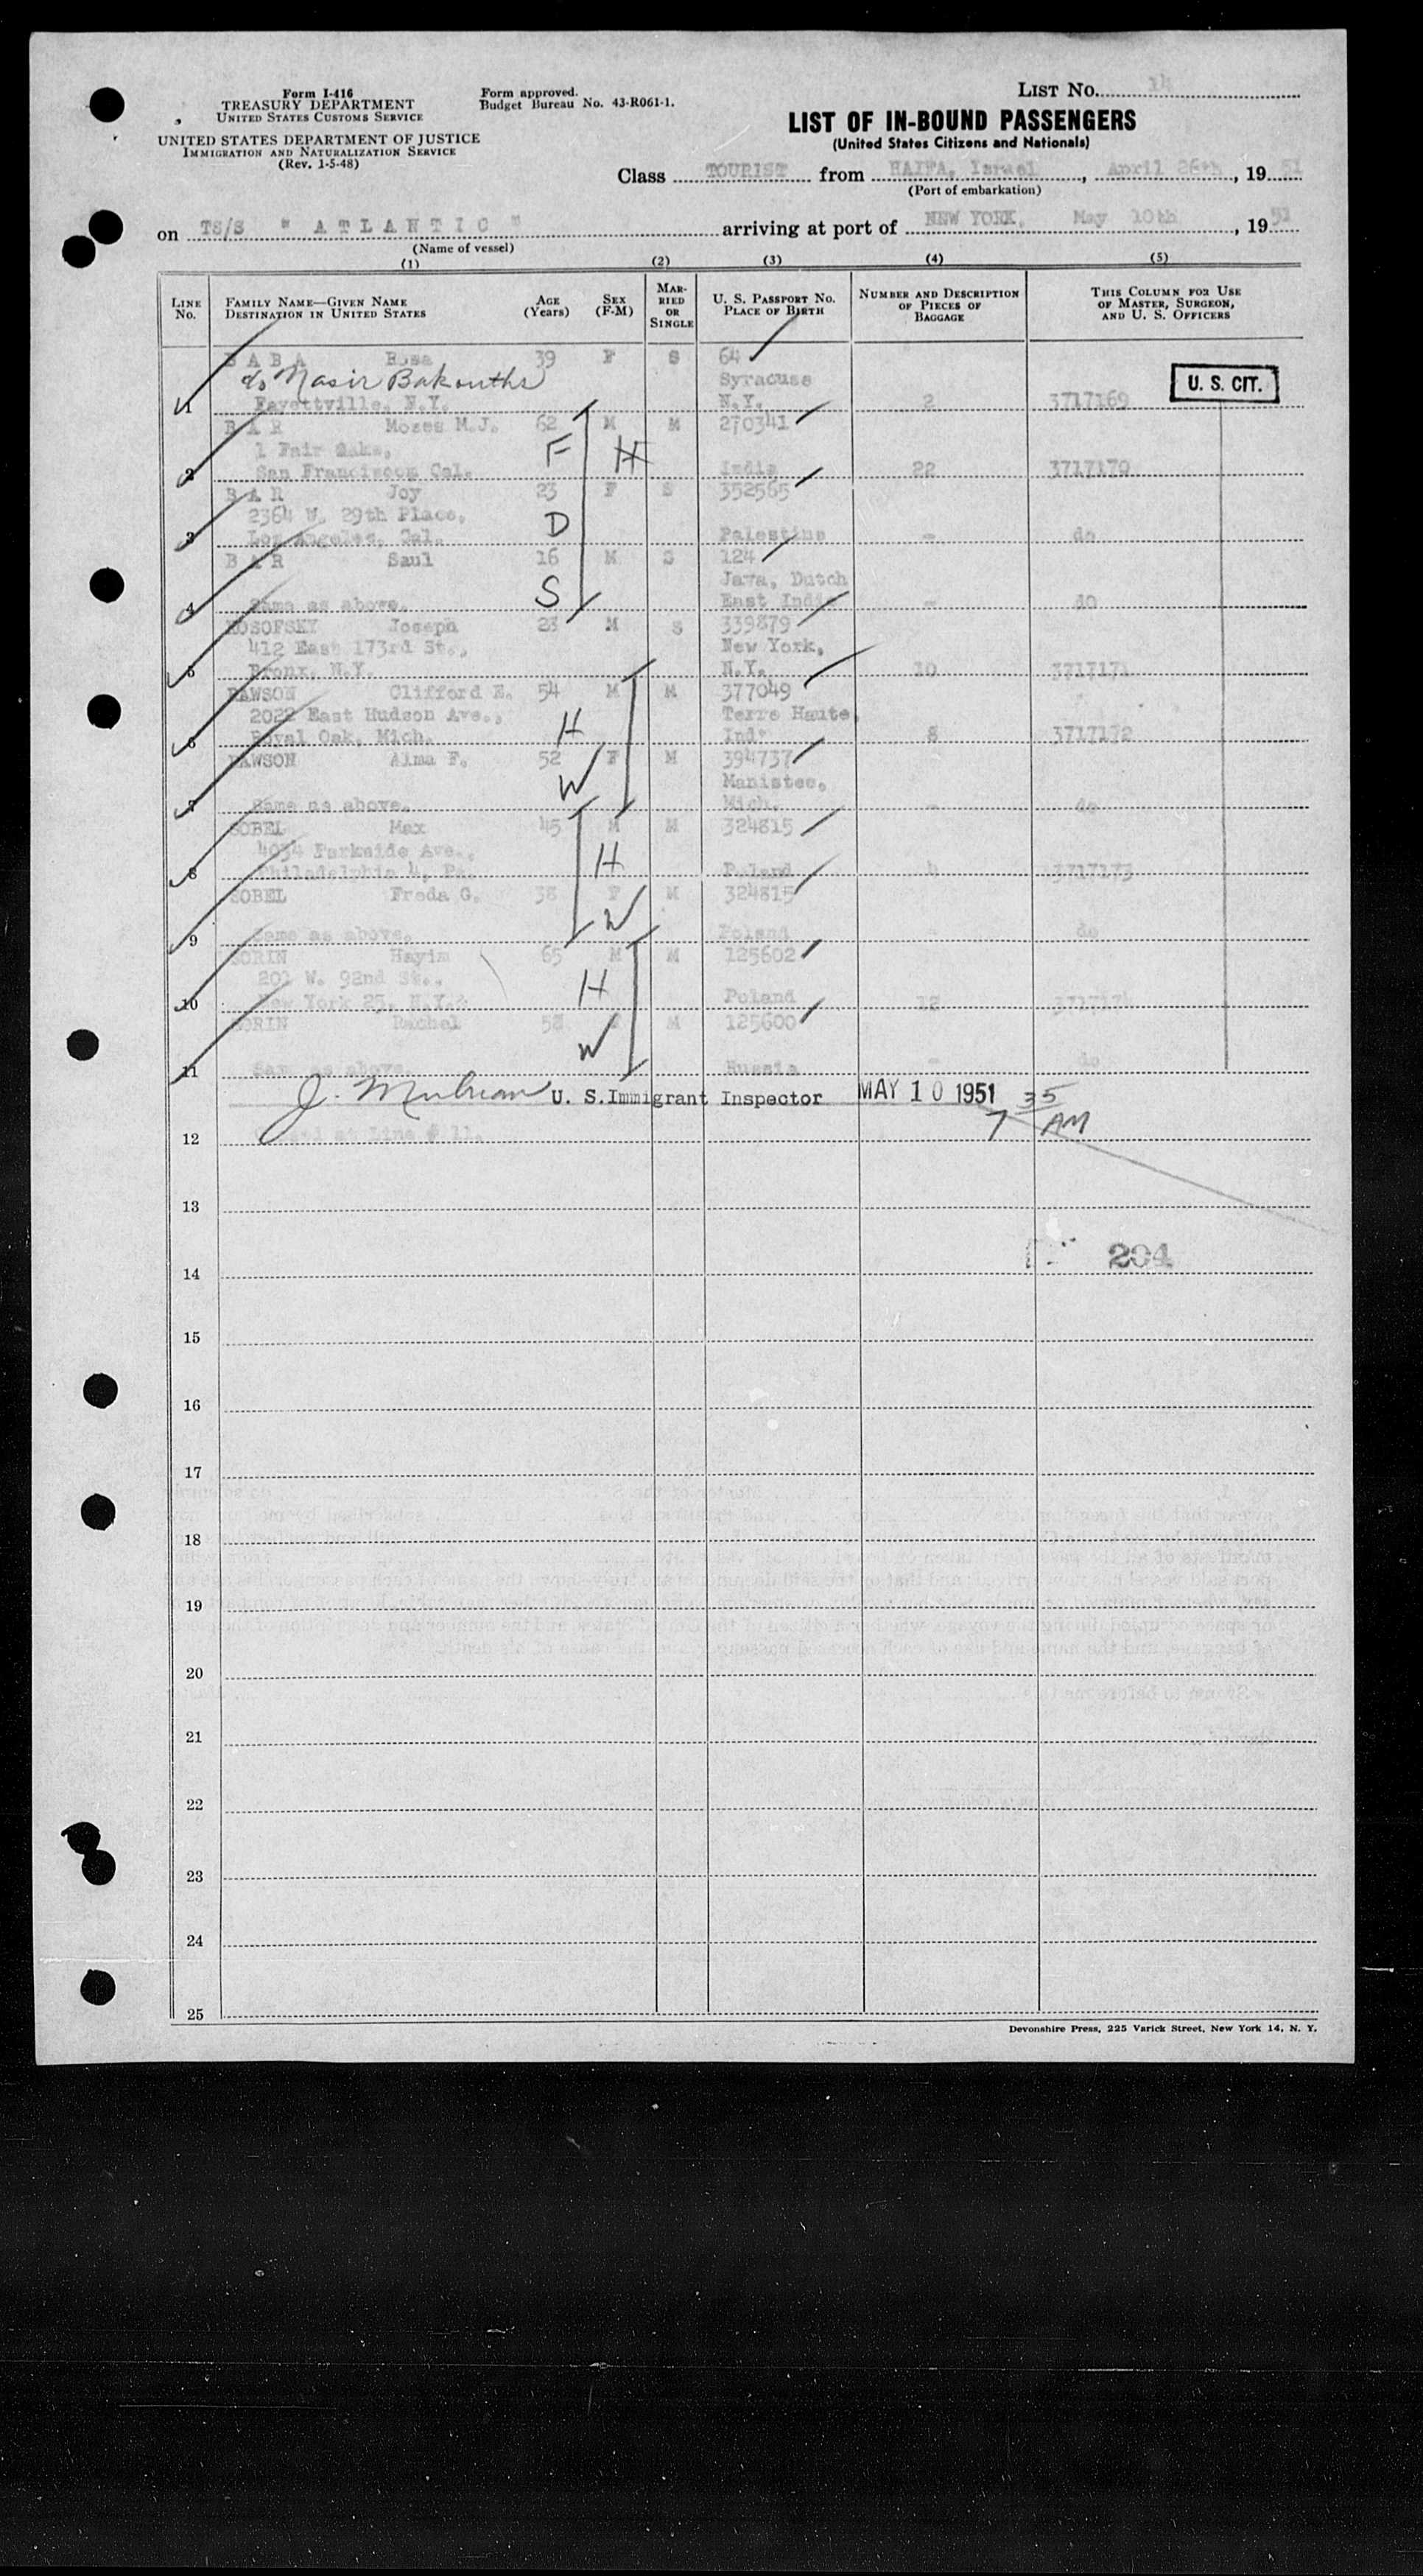 Form I-416
TREASURY DEPARTMENT
UNITED STATES CUSTOMS SERVICE
UNITED STATES DEPARTMENT OF JUSTICE
IMMIGRATION AND NATURALIZATION SERVICE
(Rev. 1-5-48)
Form approved.
Budget Bureau No. 43-R061-1.
LIST NO. 14
LIST OF IN-BOUND PASSENGERS
(United States Citizens and Nationals)
Class TOURIST from HAIFA, Israel, April 26th, 1951
(Port of embarkation)
on TS/S " ATLANTIC " arriving at port of NEW YORK, May 10th, 1951
(Name of vessel)
(1) (2) (3) (4) (5)
LINE NO. FAMILY NAME—GIVEN NAME DESTINATION IN UNITED STATES AGE (Years) SEX (F-M) MARRIED OR SINGLE U. S. PASSPORT NO. PLACE OF BIRTH NUMBER AND DESCRIPTION OF PIECES OF BAGGAGE THIS COLUMN FOR USE OF MASTER, SURGEON, AND U. S. OFFICERS
BABA Rosa 39 F S 64
c/o Nasir Bakouths Syracuse U. S. CIT.
1 Fayettville, N.Y. N.Y. 2 3717169
BAR Moses M.J. 62 M M 270341
1 Fair Oaks, F H
2 San Franciscom Cal. India 22 3717170
BAR Joy 23 F S 352565
2364 W. 29th Place, D
3 Los Angeles, Cal. Palestine - do
BAR Saul 16 M S 124
Java, Dutch
4 Same as above. S East Indie - do
KOSOFSKY Joseph 23 M S 339879
412 East 173rd St., New York,
5 Bronx, N.Y. N.Y. 10 3717171
DAWSON Clifford E. 54 M M 377049
2022 East Hudson Ave., H Terre Haute,
6 Royal Oak, Mich. Ind. 8 3717172
DAWSON Alma F. 52 F M 394737
W Manistee,
7 Same as above. Mich. - do
SOBEL Max 45 M M 324815
4034 Parkside Ave., H
8 Philadelphia 4, Pa. Poland 4 3717173
SOBEL Freda G. 38 F M 324815
W
9 Same as above. Poland - do
SORIN Hayim 65 M M 125602
201 W. 92nd St., H
10 New York 25, N.Y. Poland 12 3717174
SORIN Rachel 58 F M 125600
W
11 Same as above. Russia - do
U. S. Immigrant Inspector MAY 10 1951 7 35 AM
12 line # 11.
13
204
14
15
16
17
18
19
20
21
22
23
24
25
Devonshire Press, 225 Varick Street, New York 14, N. Y.